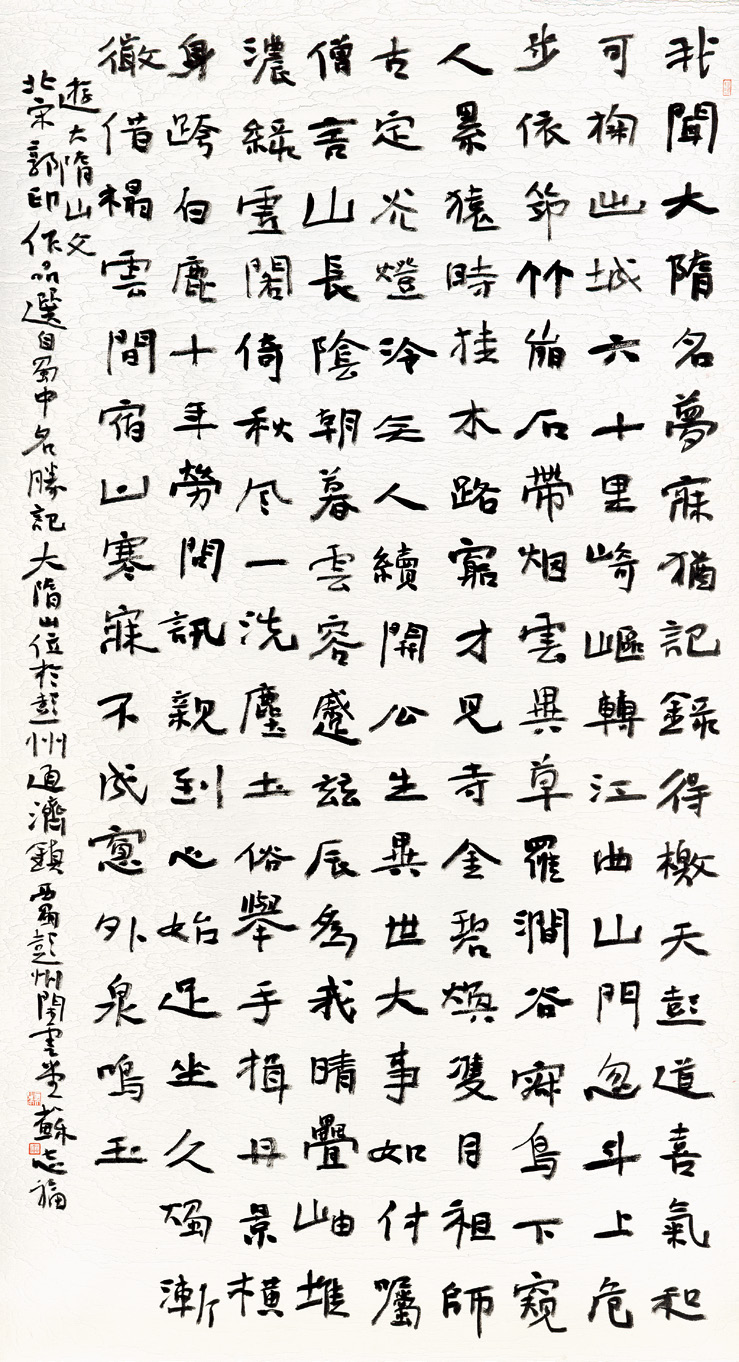 我聞大隋名夢寐猶記錄得檄天彭道喜氣和
可掬山城六十里崎嶇轉江曲山門忽斗上危
步依節竹崩石帶烟雲異草羅澗谷寂鳥下窺
人累猿時挂木路窮才見寺金碧煥雙目祖師
古定光燈冷無人續開公生異世大事如付囑
僧言山長陰朝暮雲容蹙茲辰為我晴疊岫堆
濃綠虛閣倚秋風一洗塵土俗舉手揖丹景橫
身跨白鹿十年勞問訊親到心始足坐久燭漸
微借榻雲間宿山寒寐不成窗外泉鳴玉
遊大隋山文
北宋郭印作品選自蜀中名勝記大隋山位於彭州通濟鎮蜀彭州聞雲堂蘇志福